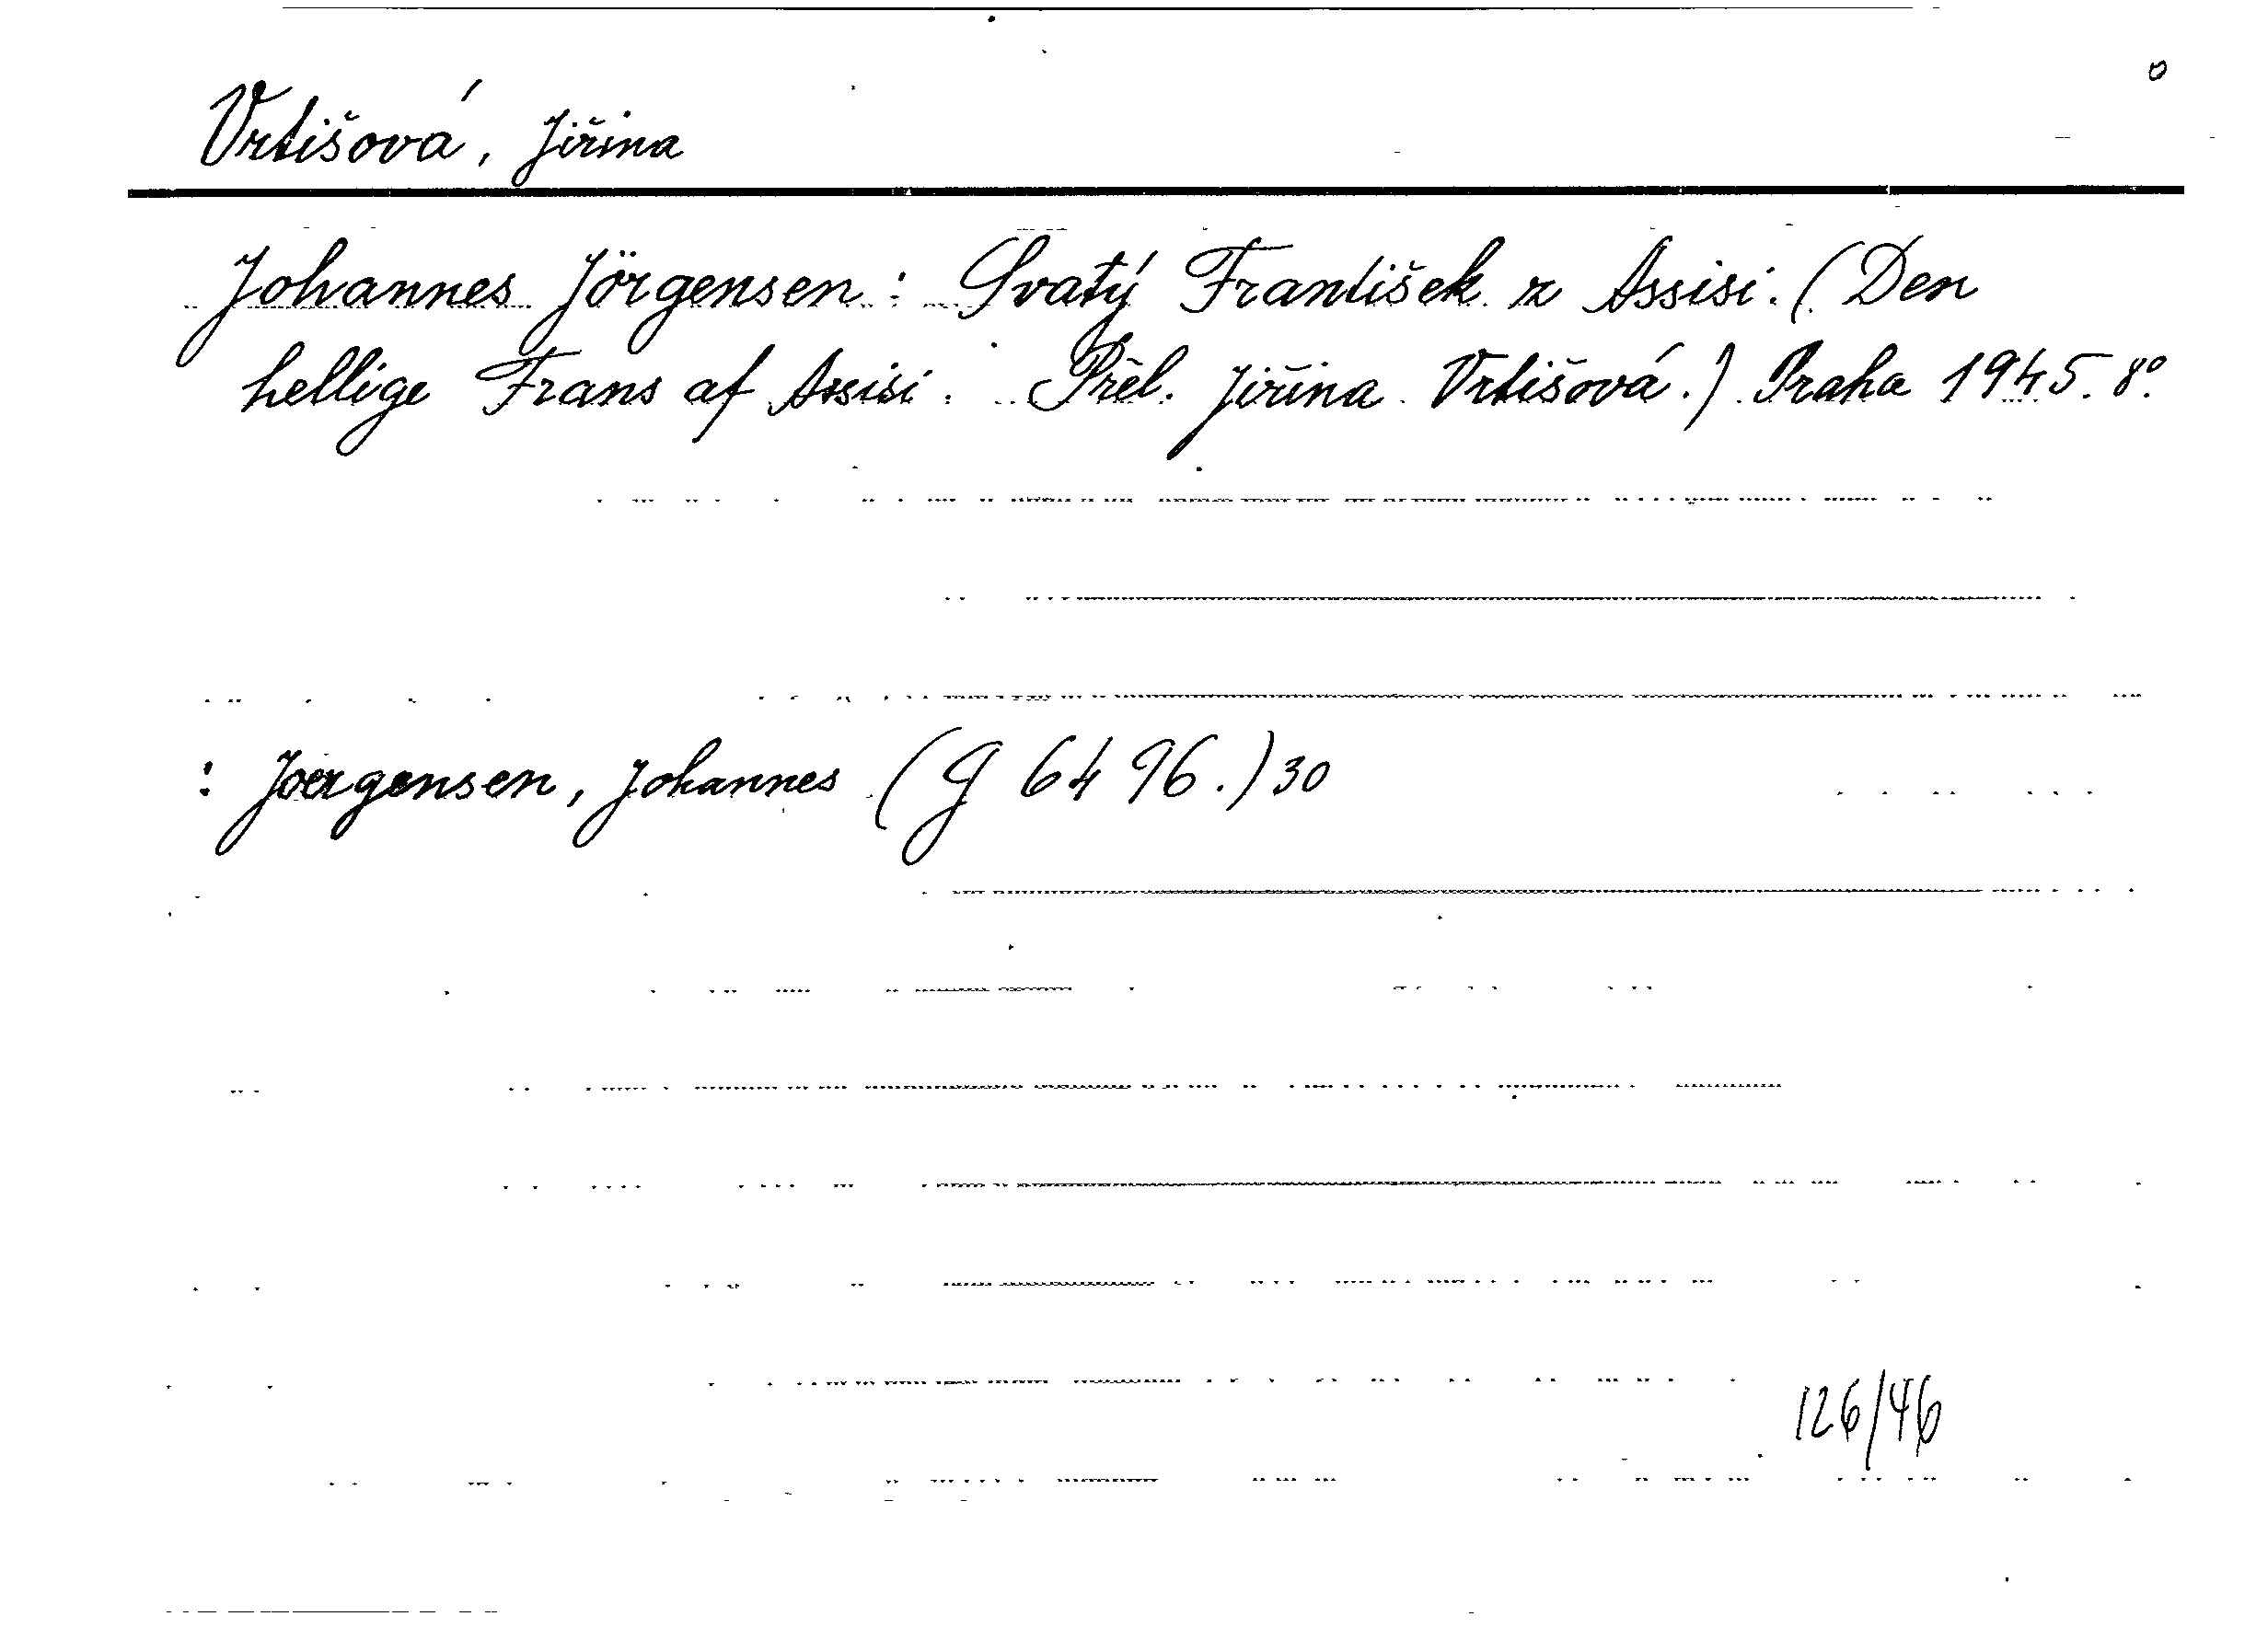 o
Vrtišová, Jiřina
Johannes Jörgensen: Svatý František z Assisi. (Den
hellige Frans af Assisi. Přel. Jiřina Vrtišová.) Praha 1945. 8°.
: Joergensen, Johannes (G 6496.) 30
126/46